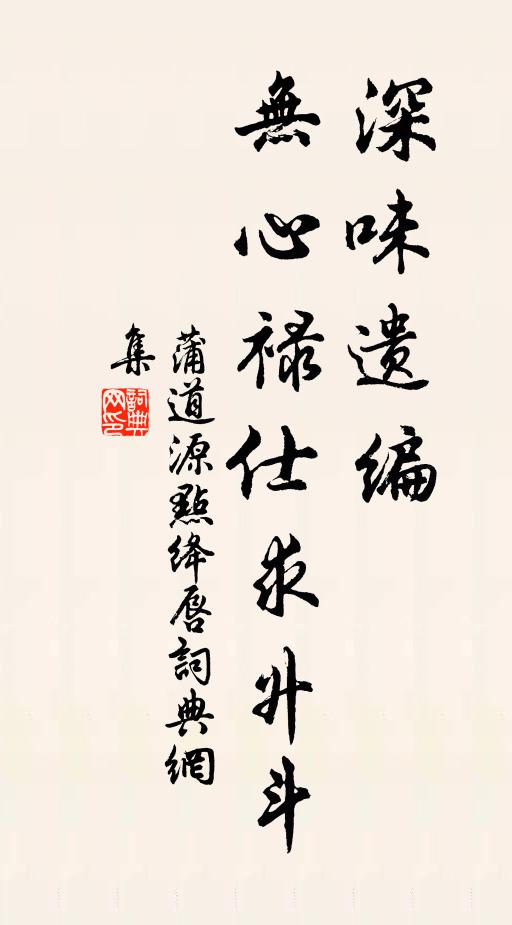 深味遗编
無心禄仕求升斗
蒲道源點绛唇詞典網
集
詞典网印